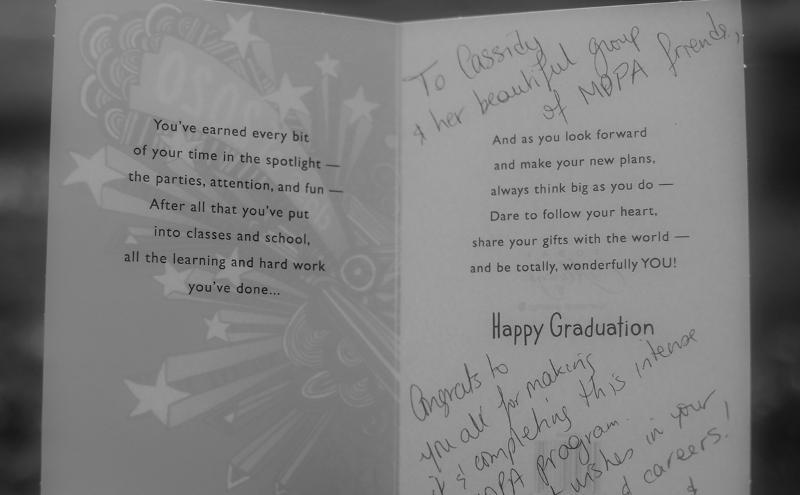 You've earned every bit
of your time in the spotlight —
the parties, attention, and fun —
After all that you've put
into classes and school,
all the learning and hard work
you've done...
To Cassidy
& her beautiful group
of MDPA friends,
And as you look forward
and make your new plans,
always think big as you do —
Dare to follow your heart,
share your gifts with the world —
and be totally, wonderfully YOU!
Happy Graduation
Congrats to
you all for making
it & completing this intense
MDPA program.
wishes in your
careers!
&